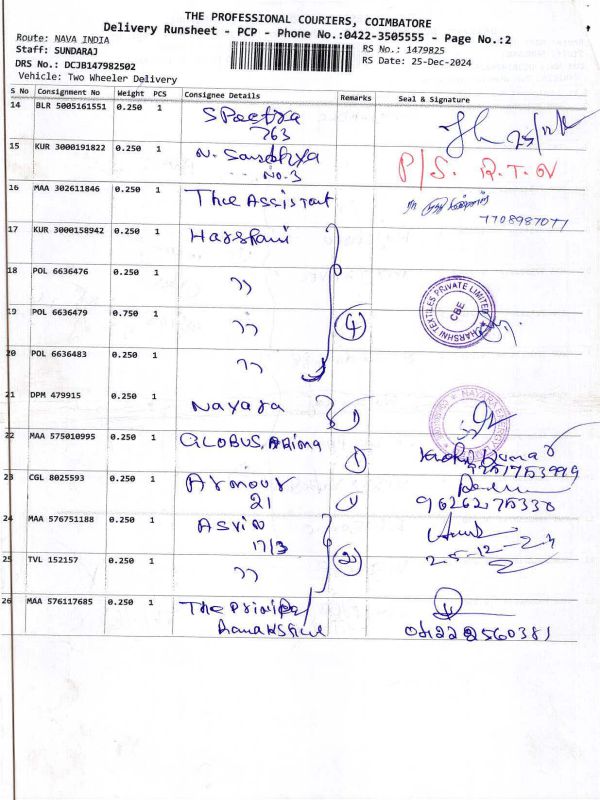 THE PROFESSIONAL COURIERS, COIMBATORE
Delivery Runsheet - PCP - Phone No.:0422-3505555 - Page No.:2
Route: NAVA INDIA
Staff: SUNDARAJ
RS No.: 1479825
DRS No.: DCJB147982502
RS Date: 25-Dec-2024
Vehicle: Two Wheeler Delivery
S No Consignment No Weight PCS Consignee Details Remarks Seal & Signature
14 BLR 5005161551 0.250 1 Spectra
763
15 KUR 3000191822 0.250 1 N.
No.3 P/S. R.T.
16 MAA 302611846 0.250 1 The Assistant
7708987077
17 KUR 3000158942 0.250 1 Harshani
18 POL 6636476 0.250 1 ״
19 POL 6636479 0.750 1 ״ 4
HARSHNI TEXTILES PRIVATE LIMITED
CBE
20 POL 6636483 0.250 1 ״
21 DPM 479915 0.250 1 Nayara 1
22 MAA 575010995 0.250 1 GLOBUS, 1
23 CGL 8025593 0.250 1 Armour
21 1 9626275338
24 MAA 576751188 0.250 1 Asvin
17/3
25-12-24
25 TVL 152157 0.250 1 ״ 2
26 MAA 576117685 0.250 1 The
0422 2560381